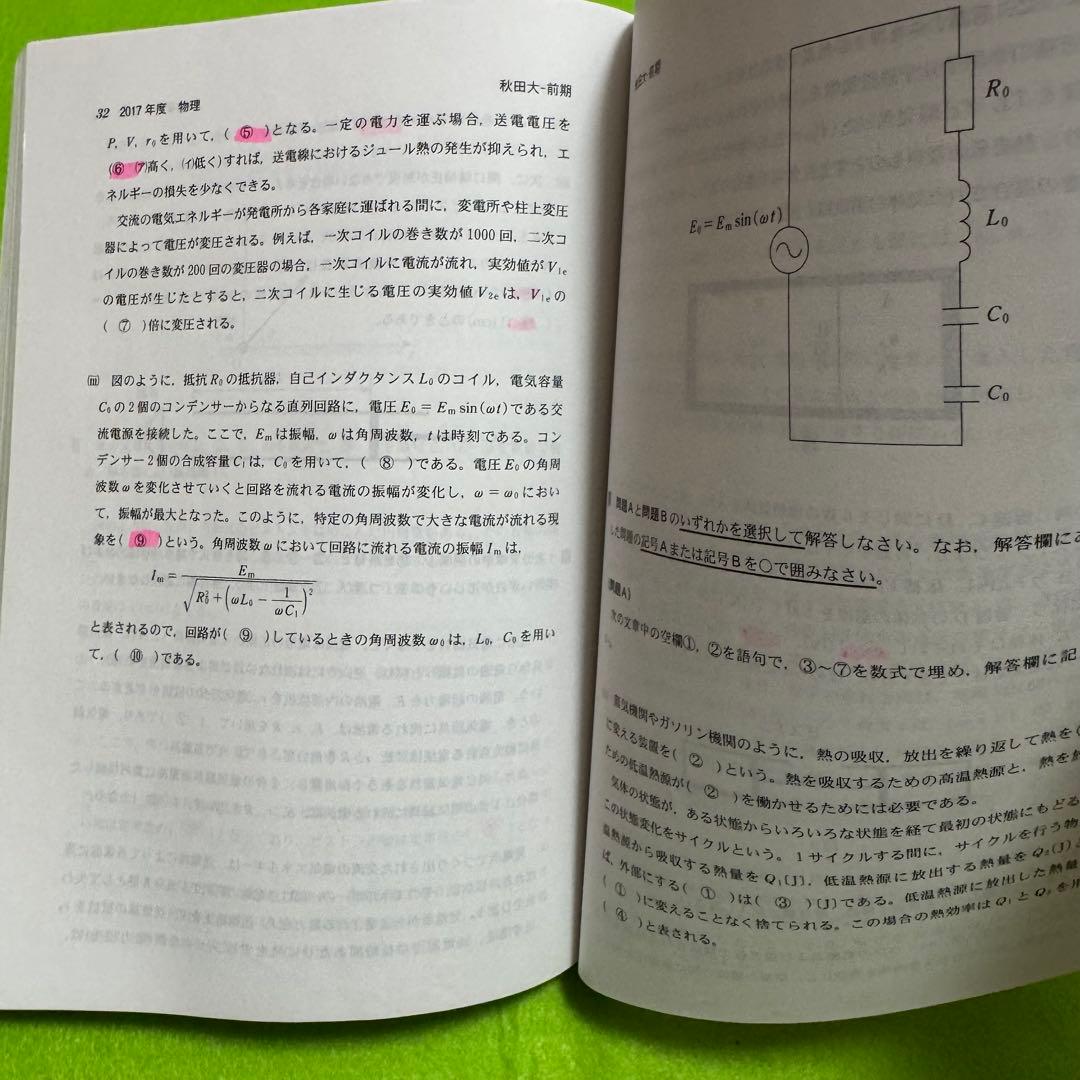 32 2017年度 物理
秋田大-前期
P, V, r₀を用いて,( ⑤ )となる。一定の電力を運ぶ場合,送電電圧を
(⑥ (ア)高く,(イ)低く)すれば,送電線におけるジュール熱の発生が抑えられ,エ
ネルギーの損失を少なくできる。
交流の電気エネルギーが発電所から各家庭に運ばれる間に,変電所や柱上変圧
器によって電圧が変圧される。例えば,一次コイルの巻き数が1000回,二次コ
イルの巻き数が200回の変圧器の場合,一次コイルに電流が流れ,実効値がV₁ₑ
の電圧が生じたとすると,二次コイルに生じる電圧の実効値V₂ₑは,V₁ₑの
( ⑦ )倍に変圧される。
(iii) 図のように,抵抗R₀の抵抗器,自己インダクタンスL₀のコイル,電気容量
C₀の2個のコンデンサーからなる直列回路に,電圧E₀=Eₘsin(ωt)である交
流電源を接続した。ここで,Eₘは振幅,ωは角周波数,tは時刻である。コン
デンサー2個の合成容量C₁は,C₀を用いて,( ⑧ )である。電圧E₀の角周
波数ωを変化させていくと回路を流れる電流の振幅が変化し,ω=ω₀におい
て,振幅が最大となった。このように,特定の角周波数で大きな電流が流れる現
象を( ⑨ )という。角周波数ωにおいて回路に流れる電流の振幅Iₘは,
Iₘ=Eₘ/√(R₀²+(ωL₀-1/(ωC₁))²)
と表されるので,回路が( ⑨ )しているときの角周波数ω₀は,L₀,C₀を用い
て,( ⑩ )である。
秋田大-前期
R₀
E₀=Eₘsin(ωt)
L₀
C₀
C₀
問題Aと問題Bのいずれかを選択して解答しなさい。なお,解答欄に
した問題の記号Aまたは記号Bを○で囲みなさい。
(問題A)
次の文章中の空欄①,②を語句で,③~⑦を数式で埋め,解答欄に記
蒸気機関やガソリン機関のように,熱の吸収,放出を繰り返して熱を(
に変える装置を( ② )という。熱を吸収するための高温熱源と,熱を
ための低温熱源が( ② )を働かせるためには必要である。
気体の状態が,ある状態からいろいろな状態を経て最初の状態にもどる
この状態変化をサイクルという。1サイクルする間に,サイクルを行う物
温熱源から吸収する熱量をQ₁[J],低温熱源に放出する熱量をQ₂[J]
ば,外部にする( ① )は( ③ )[J]である。低温熱源に放出した熱量
( ① )に変えることなく捨てられる。この場合の熱効率はQ₁とQ₂を
( ④ )と表される。